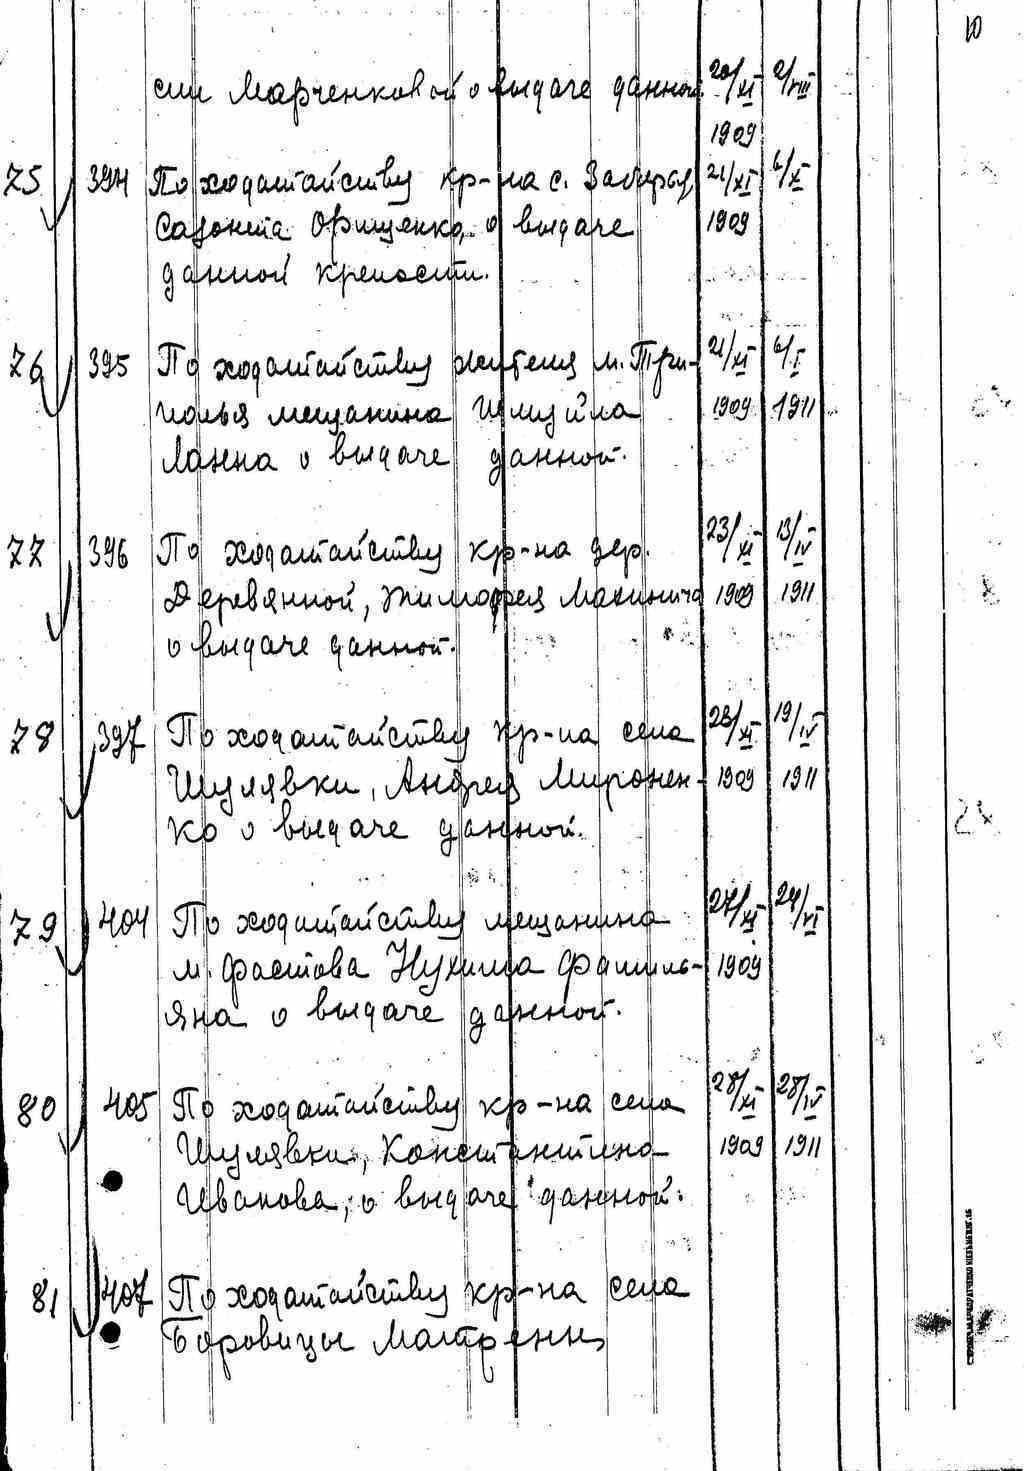 10
сии Марченковой о выдаче данной. 20/XI 2/VIII
1909
75 394 По ходатайству кр-на с. 21/XI 6/X
Сазонта Орищенко, о выдаче 1909
данной крепости.
76 395 По ходатайству жителя м. Три- 21/XI 6/I
полья мещанина Шмуйла 1909 1911
Ланна о выдаче данной.
77 396 По ходатайству кр-на дер. 23/XI 13/IV
Деревянной, Тимофея 1909 1911
о выдаче данной.
78 397 По ходатайству кр-на села 23/XI 19/IV
Шулявки, Андрея Миронен- 1909 1911
ко о выдаче данной.
79 404 По ходатайству мещанина 27/XI 24/VI
м. Фастова Нухима Фамиль- 1909
яна о выдаче данной.
80 405 По ходатайству кр-на села 28/XI 28/IV
Шулявки, Константина 1909 1911
Иванова, о выдаче данной.
81 407 По ходатайству кр-на села
Боровицы Матрены